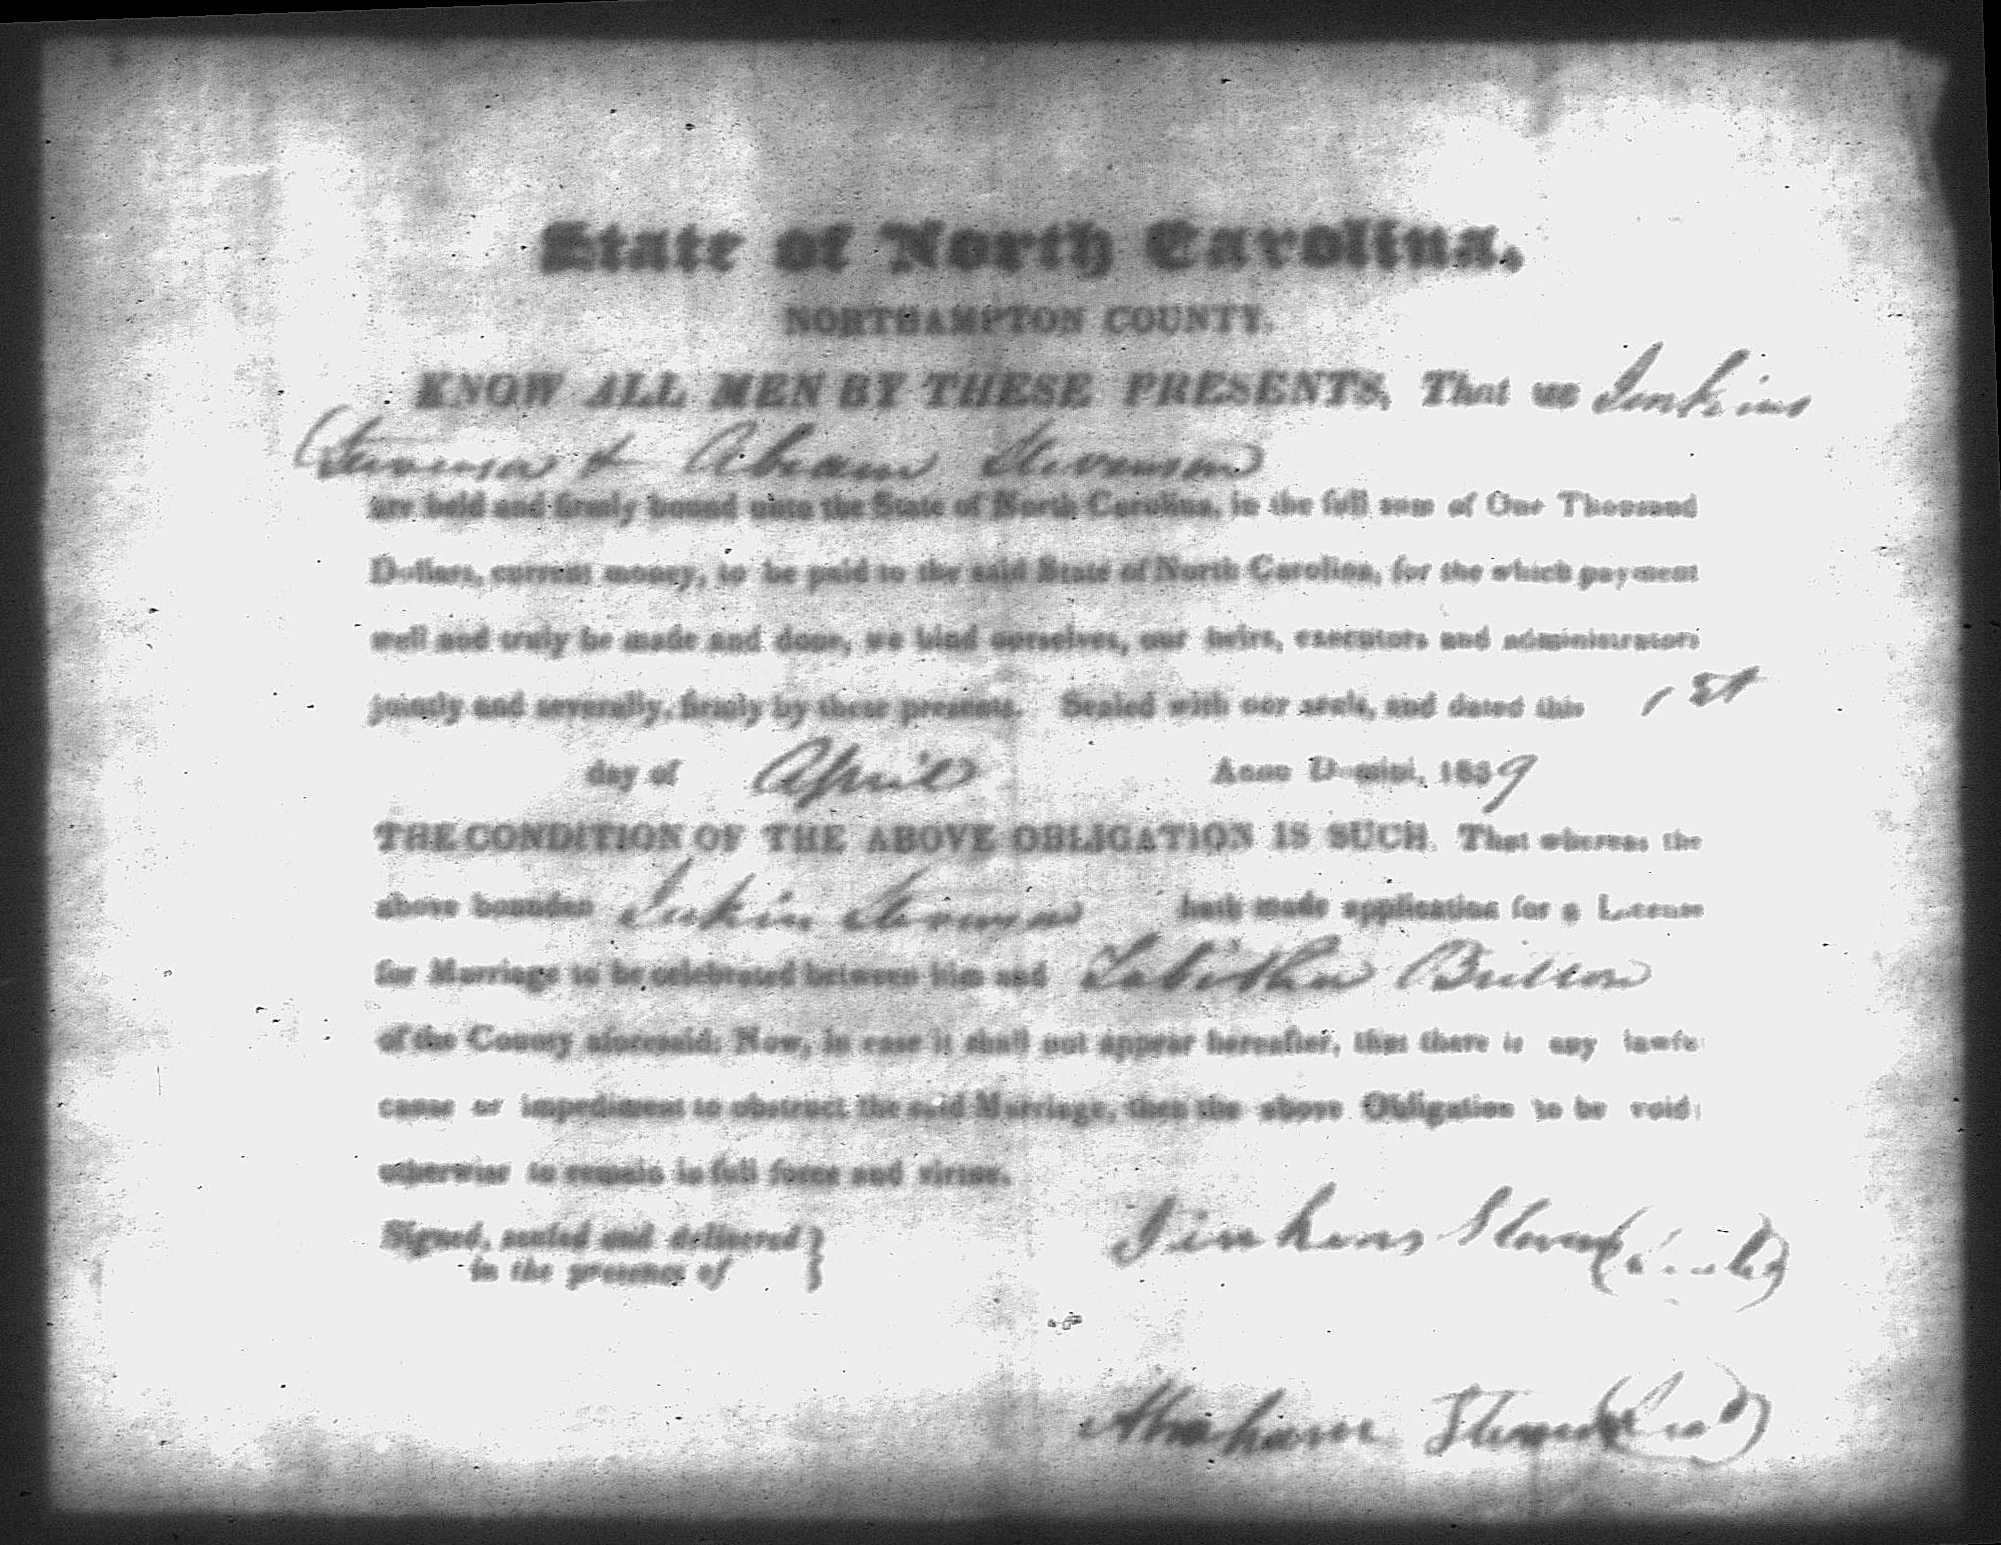 State of North Carolina,
NORTHAMPTON COUNTY.
KNOW ALL MEN BY THESE PRESENTS, That we Jenkins
Stevenson & Abram Stevenson
are held and firmly bound unto the State of North Carolina, in the full sum of One Thousand
Dollars, current money, to be paid to the said State of North Carolina, for the which payment
well and truly be made and done, we bind ourselves, our heirs, executors and administrators
jointly and severally, firmly by these presents. Sealed with our seals, and dated this 1st
day of April Anno Domini, 1839
THE CONDITION OF THE ABOVE OBLIGATION IS SUCH, That whereas the
above bounden Stevenson hath made application for a License
for Marriage to be celebrated between him and Tabitha Britton
of the County aforesaid: Now, in case it shall not appear hereafter, that there is any lawfu
cause or impediment to obstruct the said Marriage, then the above Obligation to be void;
otherwise to remain in full force and virtue.
Signed, sealed and delivered }
in the presence of
Jinkins (seal)
Abraham (seal)